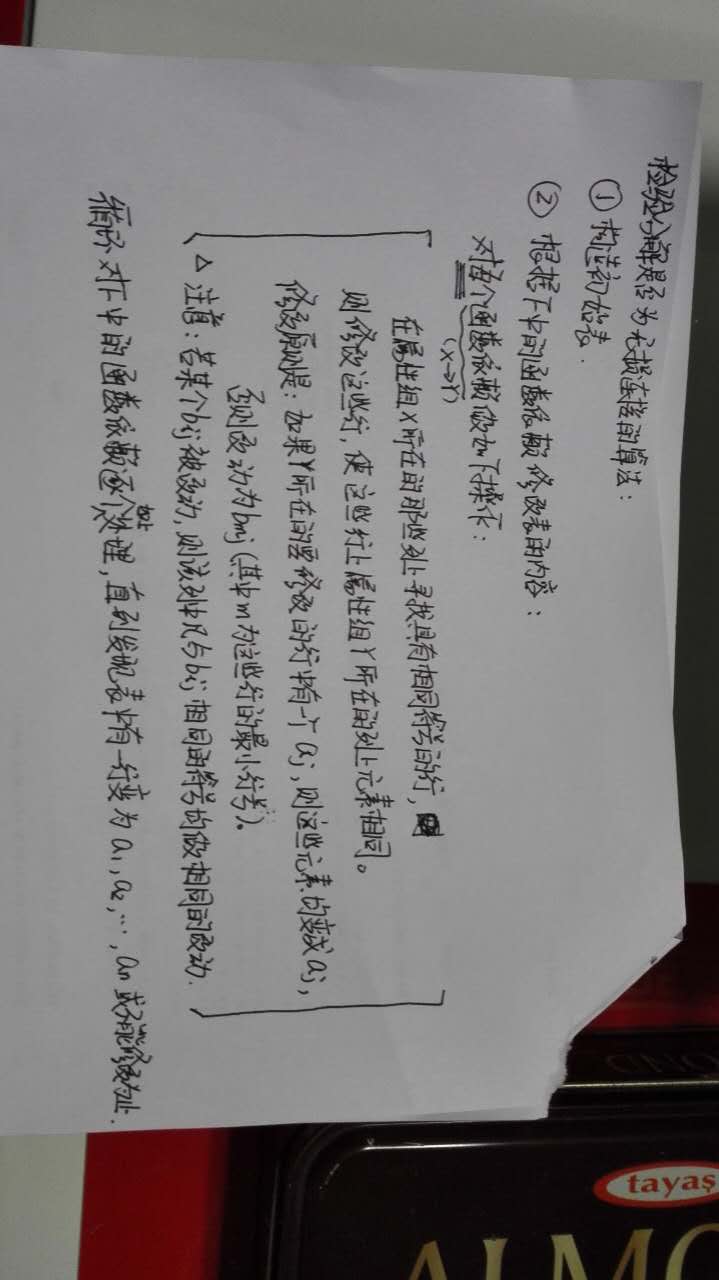 检验分解是否为无损连接的算法：
① 构造初始表.
② 根据F中的函数依赖修改表的内容：
对每个函数依赖做如下操作：
(X→Y)
在属性组X所在的那些列上寻找具有相同符号的行，
则修改这些行，使这些行上属性组Y所在的列上元素相同。
修改原则是：如果Y所在的要修改的行中有一个aj，则这些元素均变成aj，
否则改动为bmj（其中m为这些行的最小行号）。
△ 注意：若某个bij被改动，则该列中凡与bij相同的符号均做相同的改动.
循环对F中的函数依赖逐个如上处理，直到发现表中有一行变为a1，a2，…，an或不能修改为止.
tayaş
ALMO
OND